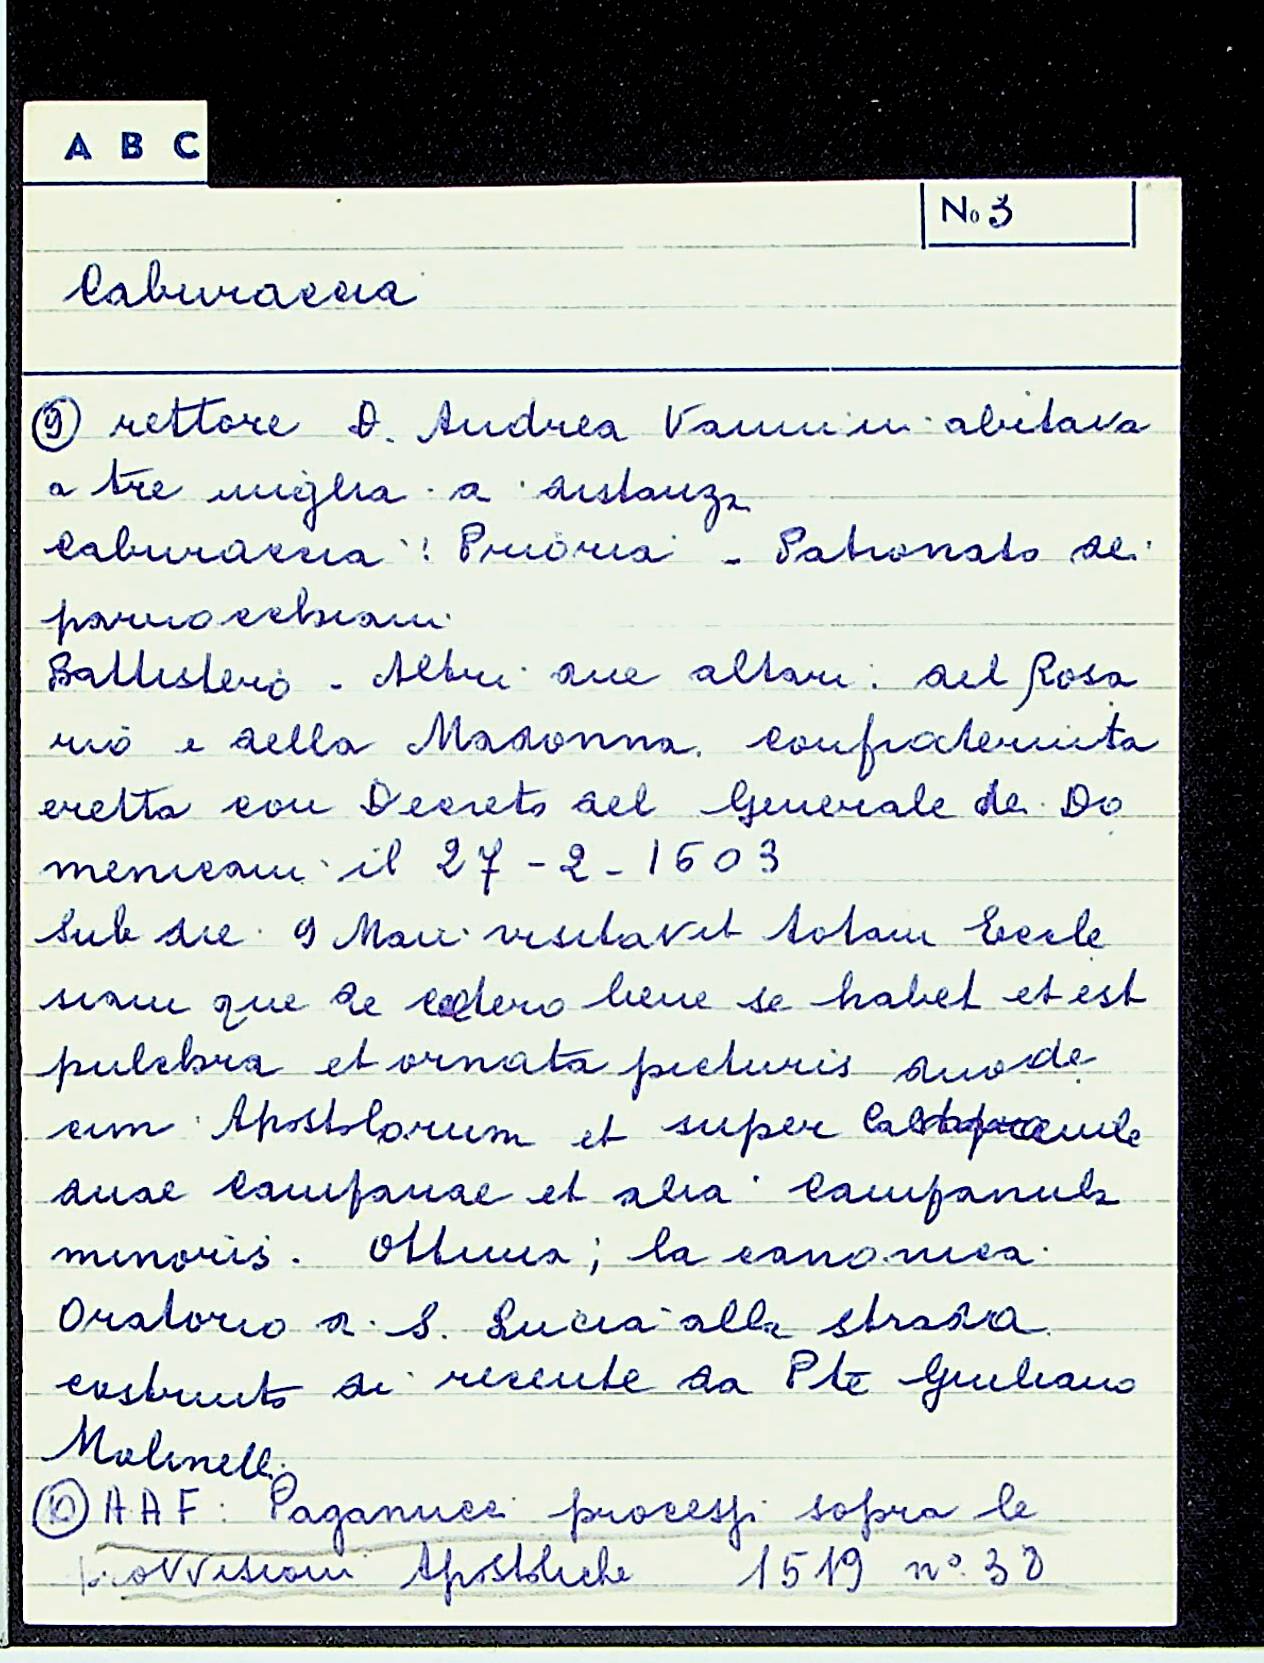 A B C
No 3
Caburaccia
⑨ rettore D. Andrea Vannini abitava
a tre miglia a distanza
Caburaccia: Prioria - Patronato dei
parrocchiani
Battistero - Altri due altari: del Rosa
rio e della Madonna. confraternita
eretta con Decreto del Generale dei Do
menicani il 27-2-1603
Sub die 9 Maii visitavit totam Eccle
siam que de cetero bene se habet et est
pulchra et ornata picturis duode
cim Apostolorum et super Campanile
duae Campanae et alia Campanula
minoris. Ottima; la canonica.
Oratorio di S. Lucia alla strada
costruito di recente da Pte Giuliano
Molinelli
⑩ AAF: Paganucci processi sopra le
provvisioni Apostoliche 1519 n° 38